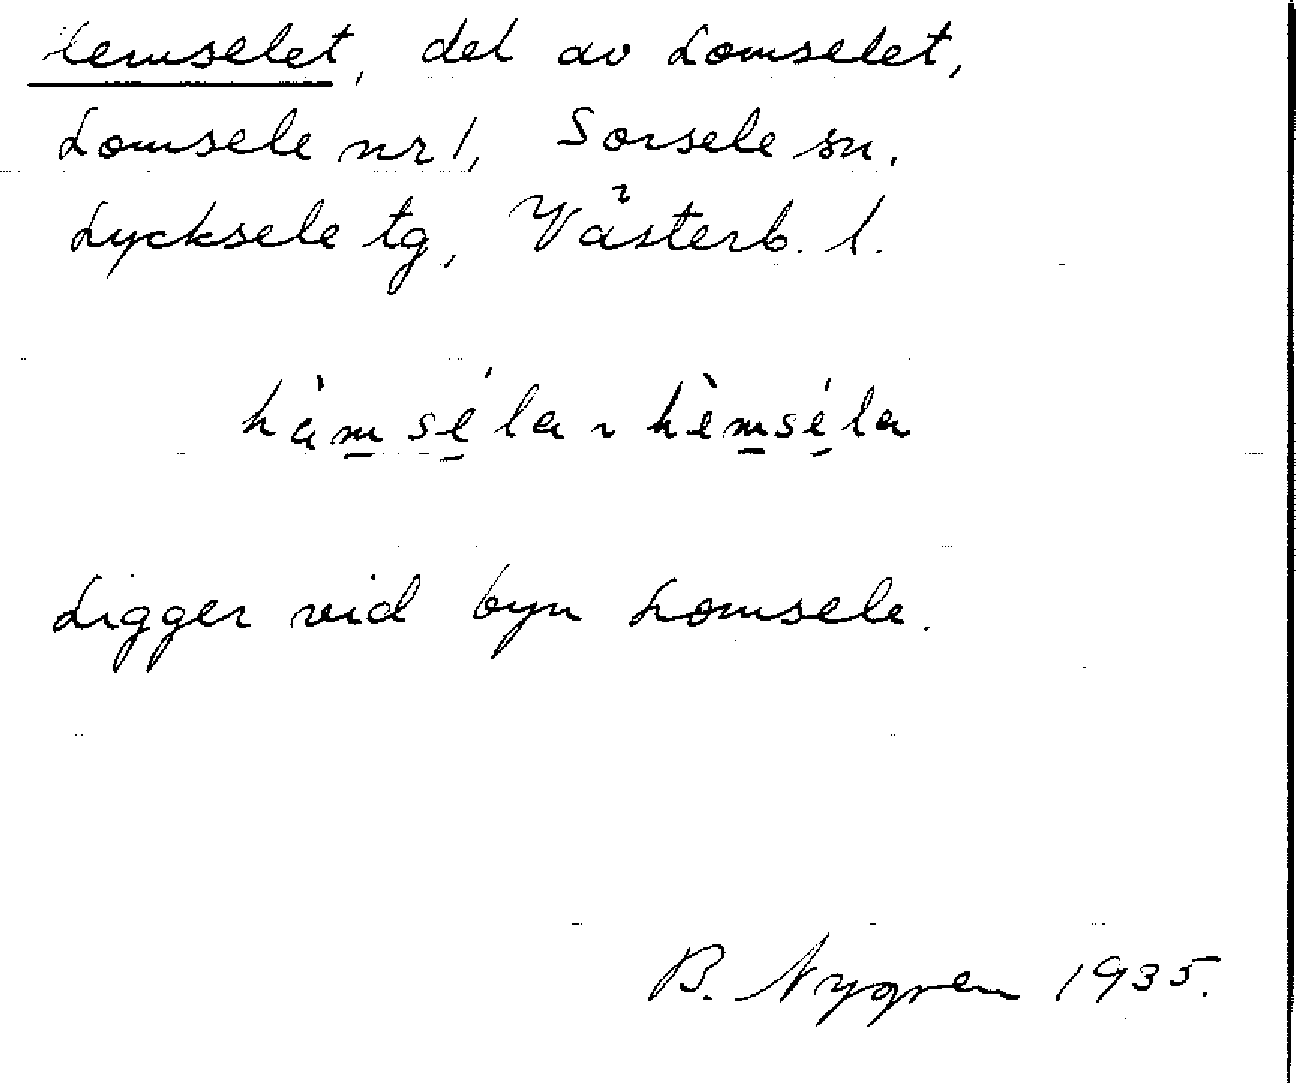 Hemselet, del av Lomselet,
Lomsele nr 1, Sorsele sn.
Lycksele tg, Västerb. l.
hàmséla ~ hèmséla
Ligger vid byn Lomsele.
B. Nygren 1935.